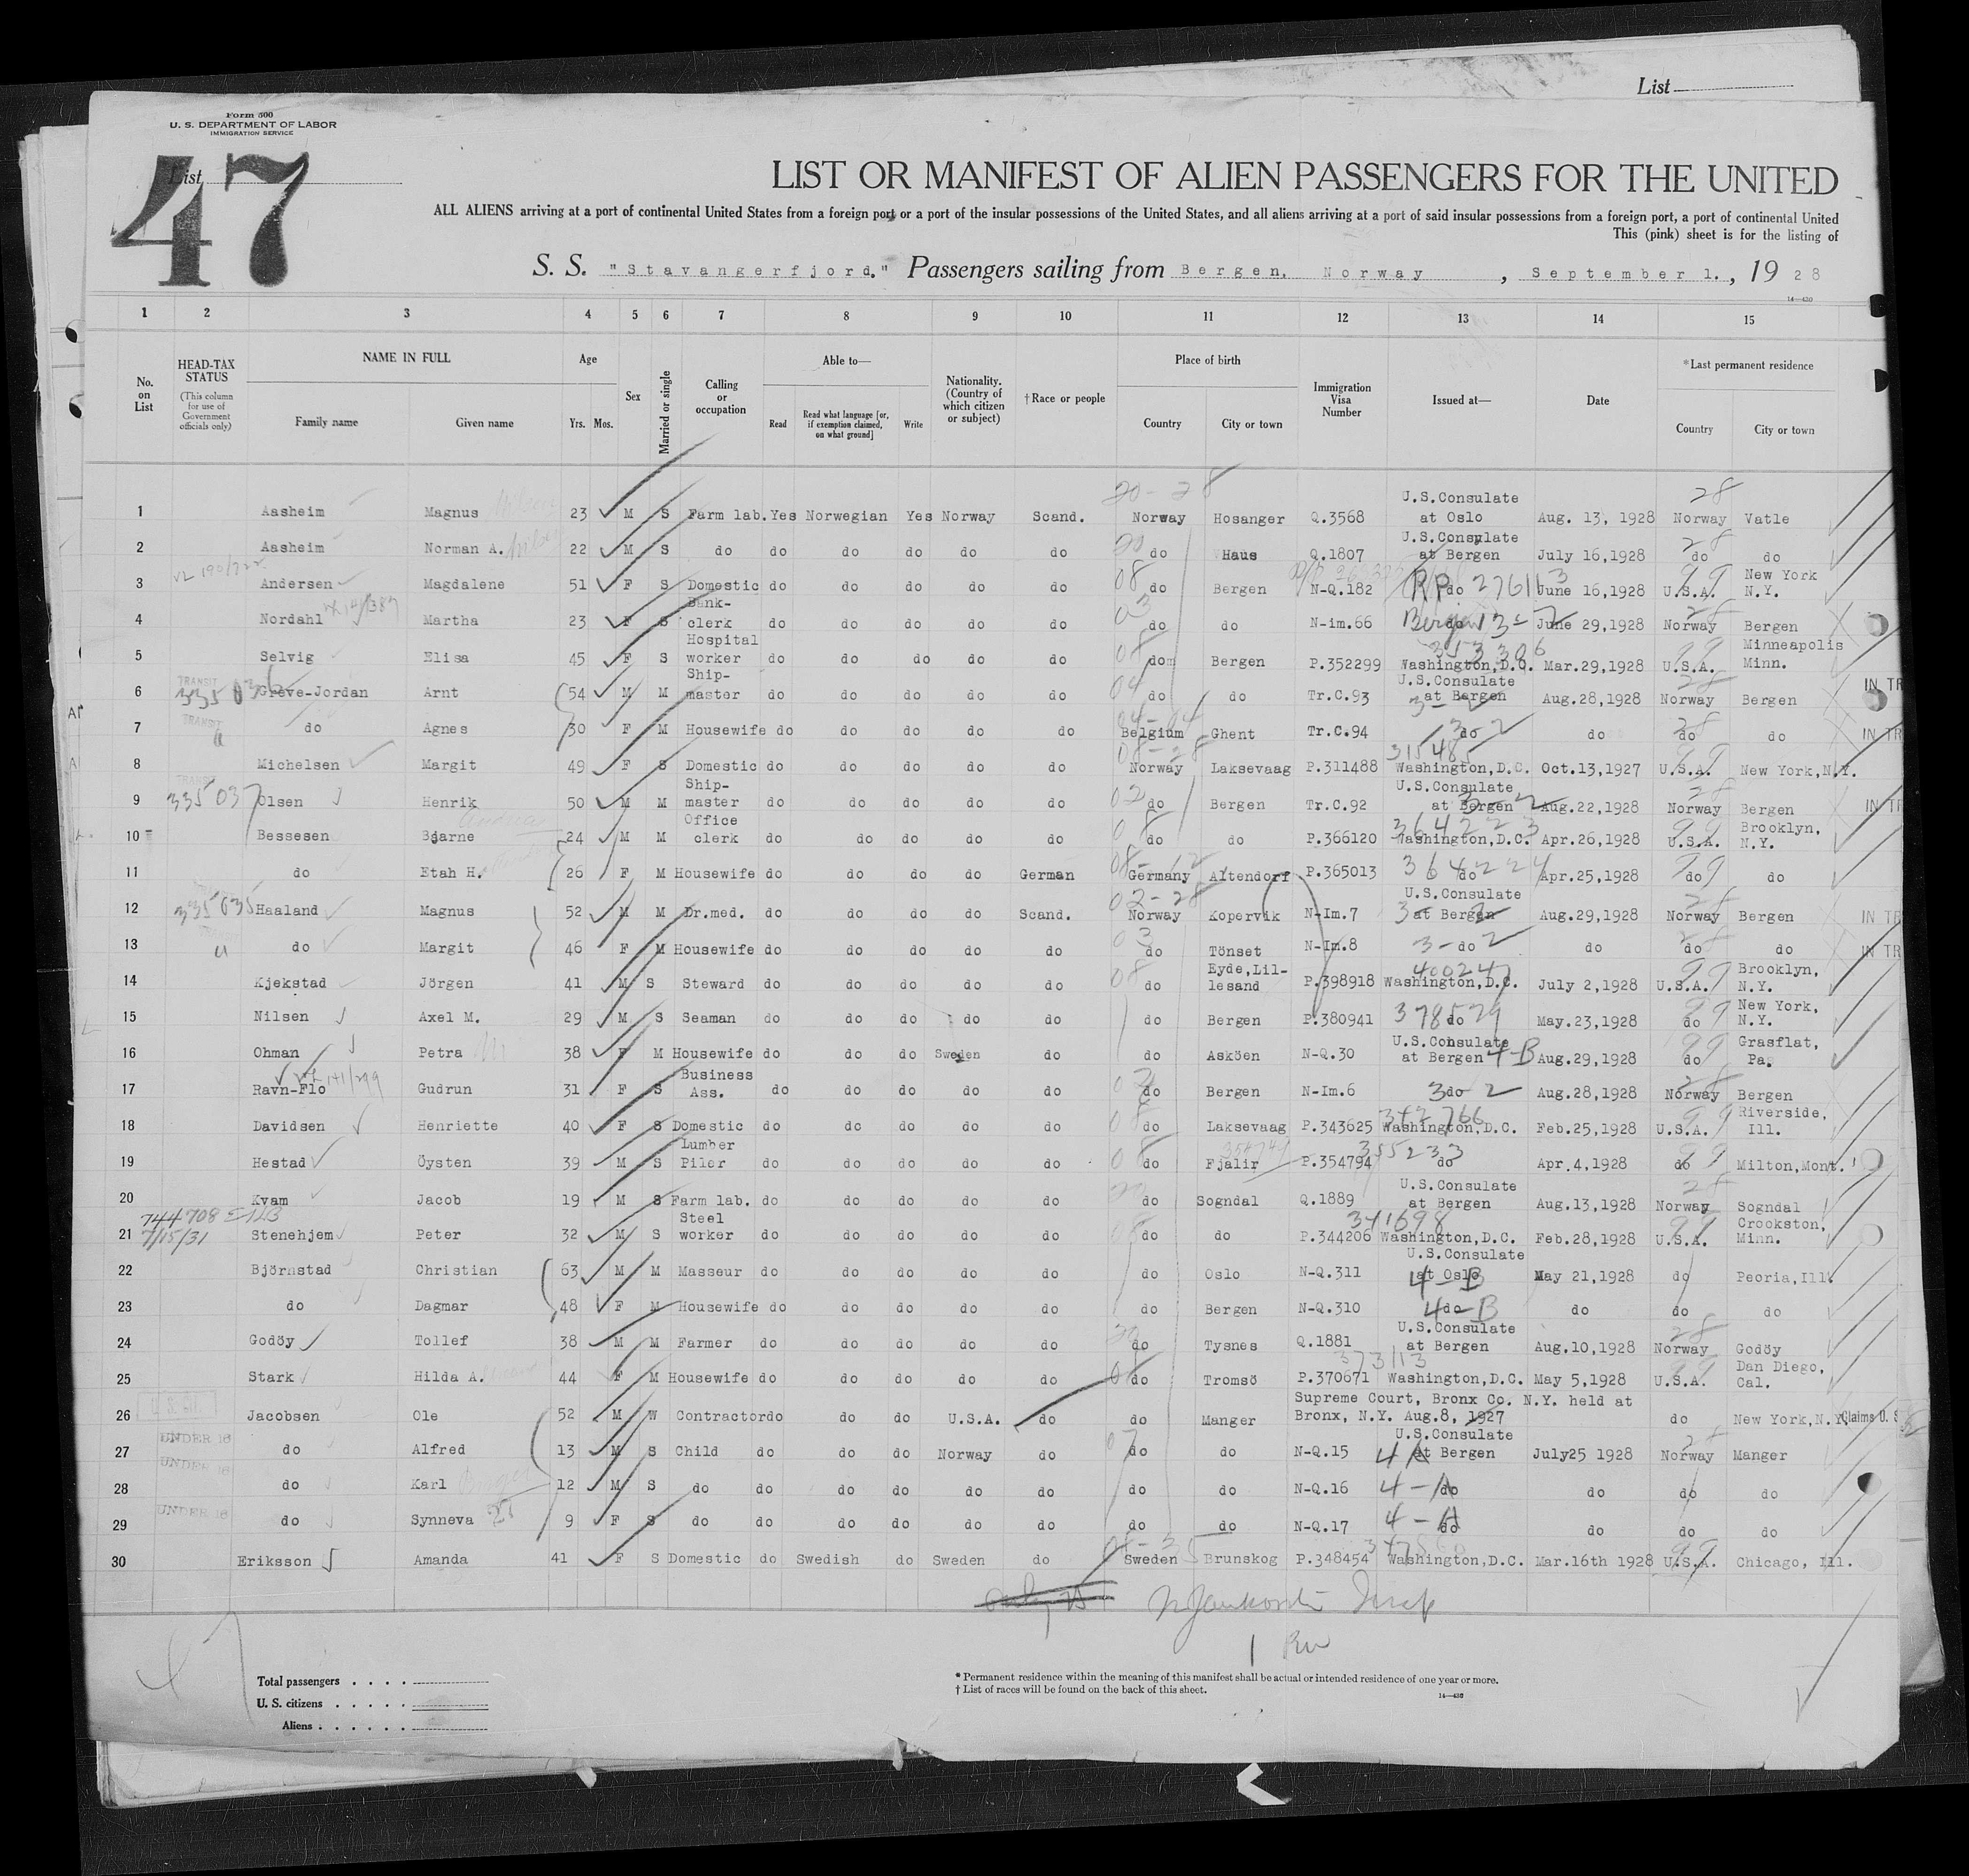 List
Form 500
U. S. DEPARTMENT OF LABOR
IMMIGRATION SERVICE
List
47
LIST OR MANIFEST OF ALIEN PASSENGERS FOR THE UNITED
ALL ALIENS arriving at a port of continental United States from a foreign port or a port of the insular possessions of the United States, and all aliens arriving at a port of said insular possessions from a foreign port, a port of continental United
This (pink) sheet is for the listing of
S. S. "Stavangerfjord." Passengers sailing from Bergen, Norway, September 1., 1928
14—430
1 2 3 4 5 6 7 8 9 10 11 12 13 14 15
No. on List
HEAD-TAX STATUS (This column for use of Government officials only)
NAME IN FULL Family name Given name
Age Yrs. Mos.
Sex
Married or single
Calling or occupation
Able to— Read Read what language [or, if exemption claimed, on what ground] Write
Nationality. (Country of which citizen or subject)
†Race or people
Place of birth Country City or town
Immigration Visa Number
Issued at—
Date
*Last permanent residence Country City or town
20-28 28
1 Aasheim Magnus 23 M S Farm lab. Yes Norwegian Yes Norway Scand. Norway Hosanger Q.3568 U.S.Consulate at Oslo Aug. 13, 1928 Norway Vatle
2 Aasheim Norman A. 22 M S do do do do do do do Haus Q.1807 U.S.Consulate at Bergen July 16,1928 do do
3 Andersen Magdalene 51 F S Domestic do do do do do do Bergen N-Q.182 do June 16,1928 U.S.A. New York N.Y.
4 Nordahl Martha 23 F S Bank-clerk do do do do do do do N-im.66 do June 29,1928 Norway Bergen
5 Selvig Elisa 45 F S Hospital worker do do do do do do Bergen P.352299 Washington,D.C. Mar.29,1928 U.S.A. Minneapolis Minn.
6 TRANSIT 335 036 Greve-Jordan Arnt 54 M M Ship-master do do do do do do do Tr.C.93 U.S.Consulate at Bergen Aug.28,1928 Norway Bergen IN TR
7 TRANSIT do Agnes 30 F M Housewife do do do do do Belgium Ghent Tr.C.94 do do do do IN TR
8 Michelsen Margit 49 F S Domestic do do do do do Norway Laksevaag P.311488 Washington,D.C. Oct.13,1927 U.S.A. New York,N.Y.
9 335 037 Olsen Henrik 50 M M Ship-master do do do do do do Bergen Tr.C.92 U.S.Consulate at Bergen Aug.22,1928 Norway Bergen IN TR
10 Bessesen Bjarne 24 M M Office clerk do do do do do do do P.366120 364223 Washington,D.C. Apr.26,1928 U.S.A. Brooklyn, N.Y.
11 do Etah H. 26 F M Housewife do do do do German Germany Altendorf P.365013 364224 do Apr.25,1928 do do
12 335 035 Haaland Magnus 52 M M Dr.med. do do do do Scand. Norway Kopervik N-Im.7 U.S.Consulate at Bergen Aug.29,1928 Norway Bergen IN TR
13 do Margit 46 F M Housewife do do do do do do Tönset N-Im.8 do do do do IN TR
14 Kjekstad Jörgen 41 M S Steward do do do do do do Eyde,Lil-lesand P.398918 Washington,D.C. July 2,1928 U.S.A. Brooklyn, N.Y.
15 Nilsen Axel M. 29 M S Seaman do do do do do do Bergen P.380941 378579 do May.23,1928 do New York, N.Y.
16 Ohman Petra 38 F M Housewife do do do Sweden do do Asköen N-Q.30 U.S.Consulate at Bergen 4-B Aug.29,1928 do Grasflat, Pa.
17 Ravn-Flo Gudrun 31 F S Business Ass. do do do do do do Bergen N-Im.6 do Aug.28,1928 Norway Bergen
18 Davidsen Henriette 40 F S Domestic do do do do do do Laksevaag P.343625 342766 Washington,D.C. Feb.25,1928 U.S.A. Riverside, Ill.
19 Hestad Öysten 39 M S Lumber Piler do do do do do do Fjalir P.354794 355233 do Apr.4,1928 do Milton,Mont.
20 Kvam Jacob 19 M S Farm lab. do do do do do do Sogndal Q.1889 U.S.Consulate at Bergen Aug.13,1928 Norway Sogndal
744708 7/15/31
21 Stenehjem Peter 32 M S Steel worker do do do do do do do P.344206 341698 Washington,D.C. Feb.28,1928 U.S.A. Crookston, Minn.
22 Björnstad Christian 63 M M Masseur do do do do do do Oslo N-Q.311 U.S.Consulate at Oslo 4-B May 21,1928 do Peoria,Ill.
23 do Dagmar 48 F M Housewife do do do do do do Bergen N-Q.310 do 4-B do do do
24 Godöy Tollef 38 M M Farmer do do do do do do Tysnes Q.1881 U.S.Consulate at Bergen Aug.10,1928 Norway Godöy
25 Stark Hilda A. 44 F M Housewife do do do do do do Tromsö P.370671 373113 Washington,D.C. May 5,1928 U.S.A. Dan Diego, Cal.
26 Jacobsen Ole 52 M W Contractor do do do U.S.A. do do Manger Supreme Court, Bronx Co. N.Y. held at Bronx, N.Y. Aug.8, 1927 do New York,N.Y. Claims U. S
27 UNDER 16 do Alfred 13 M S Child do do do Norway do do do N-Q.15 U.S.Consulate at Bergen July25 1928 Norway Manger
28 UNDER 16 do Karl 12 M S do do do do do do do do N-Q.16 4-A do do do do
29 UNDER 16 do Synneva 9 F S do do do do do do do do N-Q.17 4-A do do do do
30 Eriksson Amanda 41 F S Domestic do Swedish do Sweden do Sweden Brunskog P.348454 Washington,D.C. Mar.16th 1928 U.S.A. Chicago, Ill.
Total passengers
U. S. citizens
Aliens
* Permanent residence within the meaning of this manifest shall be actual or intended residence of one year or more.
† List of races will be found on the back of this sheet.
14—430